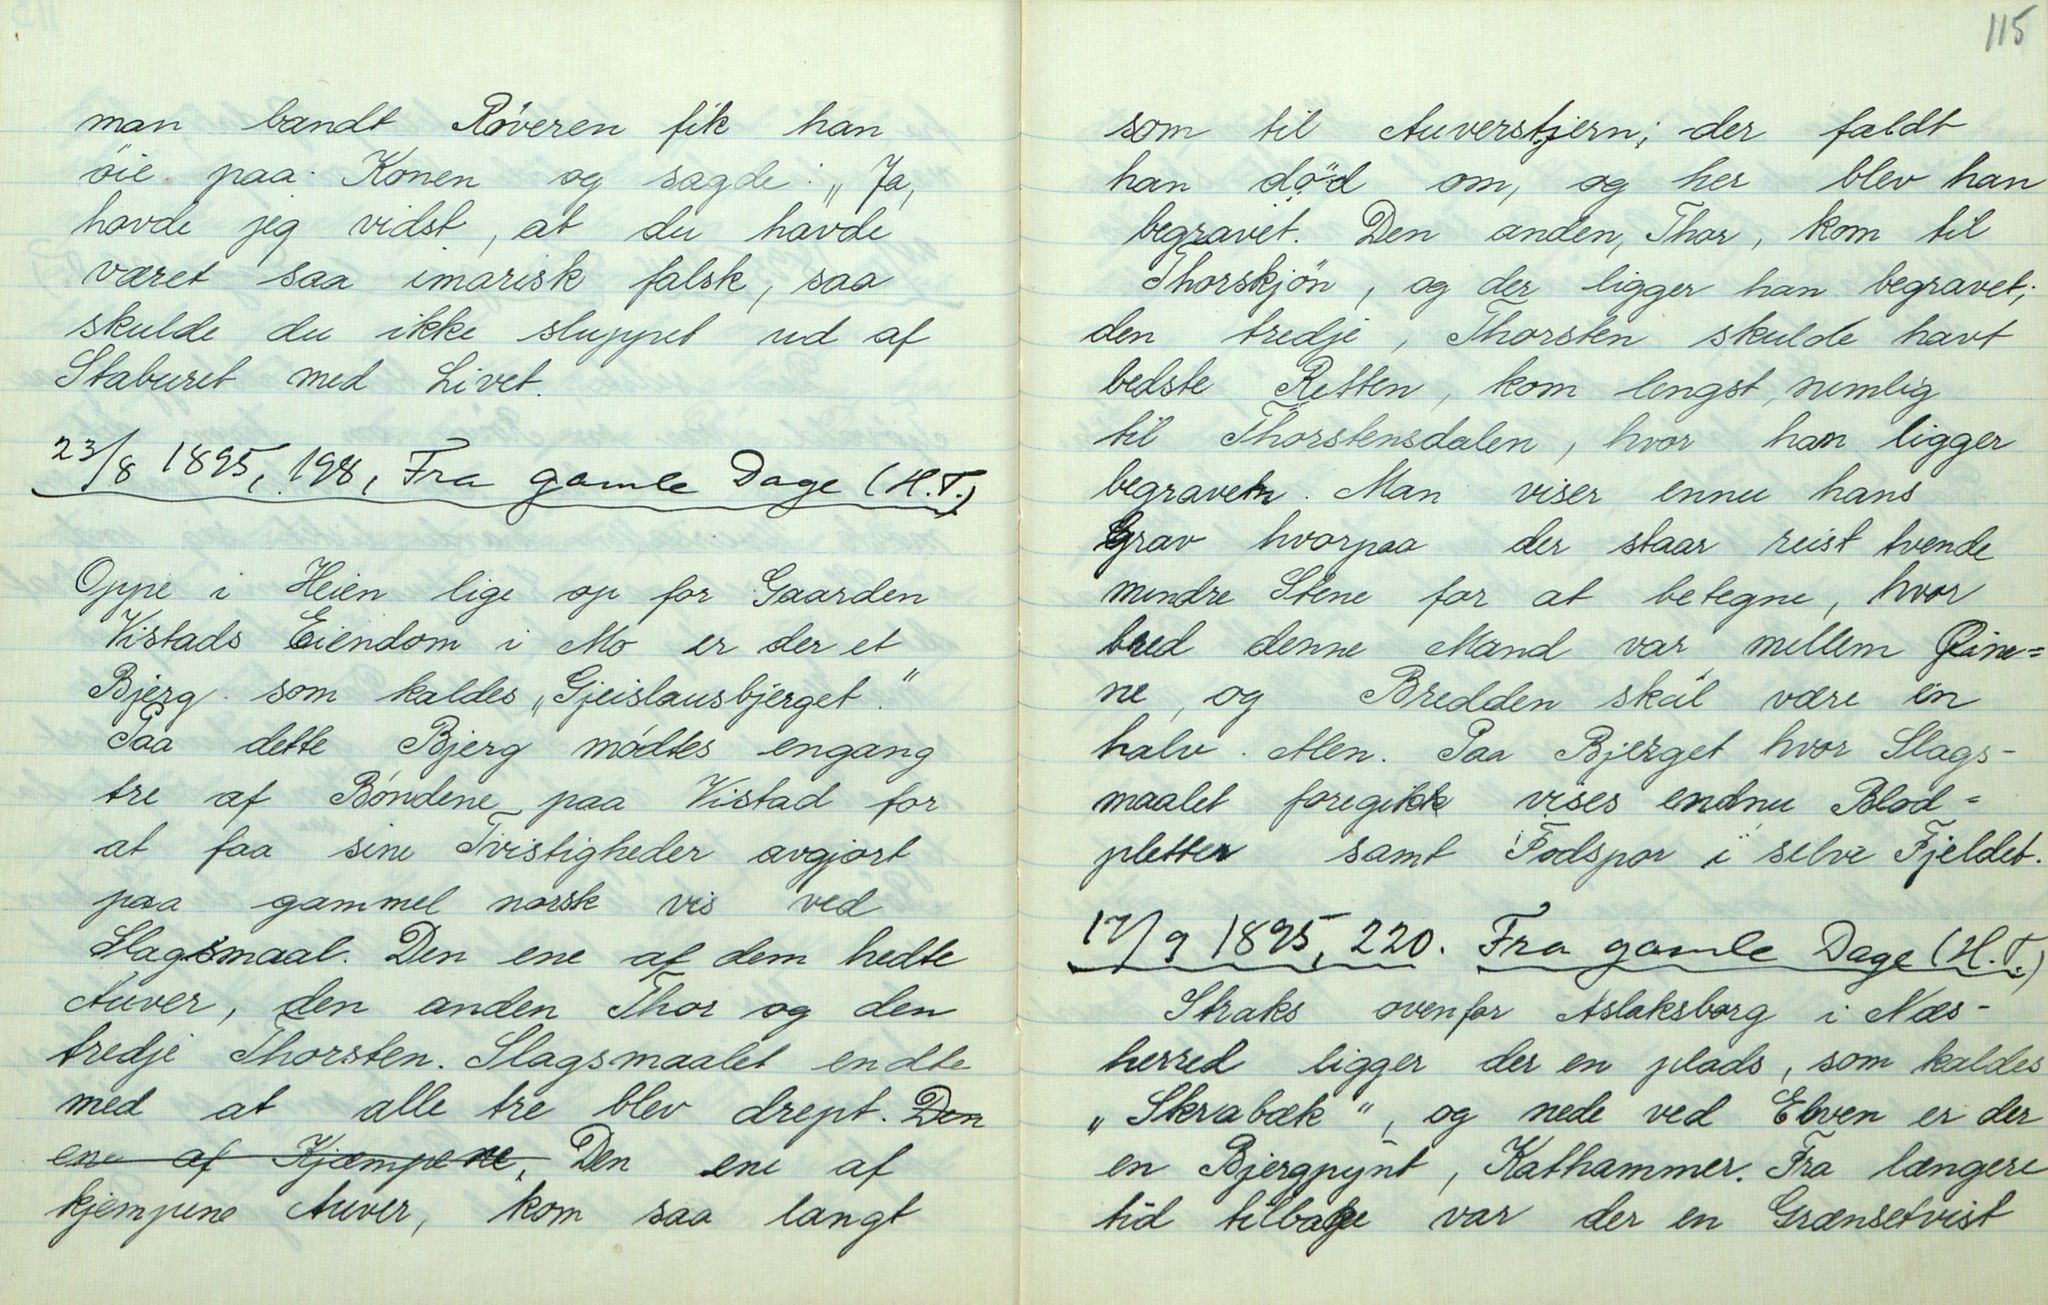 man bandt Røveren fik han
öie paa Konen og sagde: „Ja,
havde jeg vidst, at du havde
været saa imarisk falsk, saa
skulde du ikke sluppet ud af
Staburet med Livet.
23/8 1895, 198, Fra gamle Dage (H.T.)
Oppe i Heien lige op for Gaarden
Vistads Eiendom i Mo er der et
Bjerg som kaldes „Gjeislausbjerget."
Paa dette Bjerg mödtes engang
tre af Bøndene paa Vistad for
at faa sine Tvistigheder avgjort
paa gammel norsk vis ved
Slagsmaal. Den ene af dem hedte
Auver, den anden Thor og den
tredje Thorsten. Slagsmaalet endte
med at alle tre blev drept. Den
ene af Kjæmpene, Den ene af
kjempene Auver, kom saa langt
115
som til Auverstjern; der faldt
han död om, og her blev han
begravet. Den anden, Thor, kom til
Thorskjön, og der ligger han begravet;
den tredje, Thorsten skulde havt
bedste Retten, kom lengst, nemlig
til Thorstensdalen, hvor han ligger
begraven. Man viser ennu hans
Grav hvorpaa der staar reist tvende
mindre Stene for at betegne, hvor
bred denne Mand var mellem Öine=
ne, og Bredden skal være en
halv Alen. Paa Bjerget hvor Slags-
maalet foregikk vises endnu Blod=
pletter samt Fodspor i selve Fjeldet.
17/9 1895, 220. Fra gamle Dage (H.T.)
Straks ovenfor Aslaksborg i Næs-
herred ligger der en plads, som kaldes
„Skrabæk", og nede ved Elven er der
en Bjergpynt, Kathammer. Fra længere
tid tilbage var der en Grænsetvist